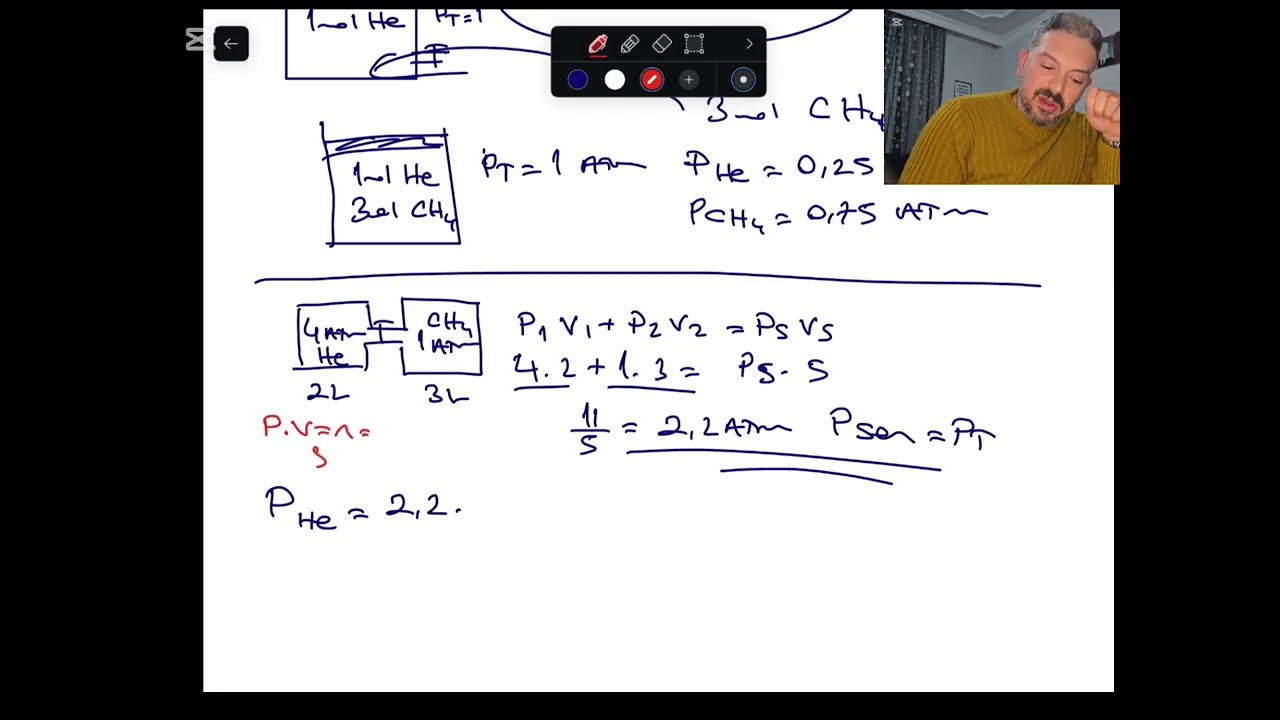 1mol He
PT=1
3mol CH4
1mol He
3mol CH4
PT = 1 ATm
PHe = 0,25
PCH4 = 0,75 ATm
4 ATm
He
2L
CH4
1 ATm
3L
P1 V1 + P2 V2 = PS VS
4. 2 + 1. 3 = PS. 5
11/5 = 2,2 ATm Pson = PT
P.V=n=
8
PHe = 2,2.